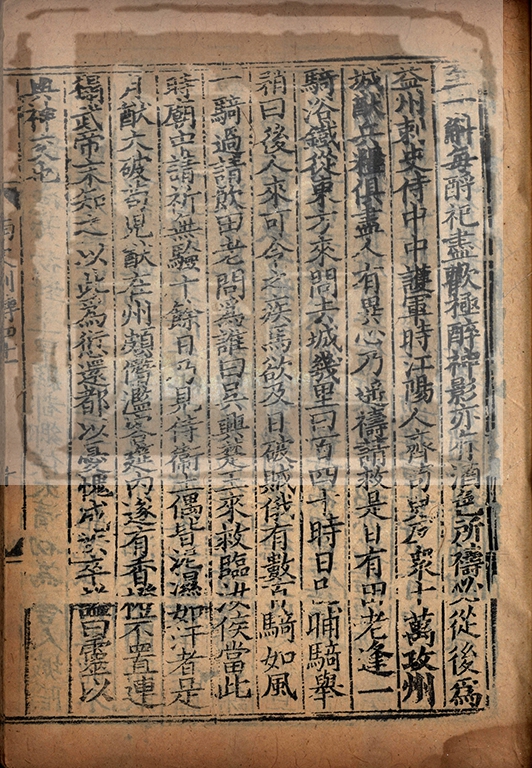 至一斛每酹祀盡歡極醉神影亦有酒色所禱必從後為
益州刺史侍中中護軍時江陽人齊苟兒反眾十萬攻州
城猷兵糧俱盡人有異心乃遙禱請救是日有田老逢一
騎浴鐵從東方來問去城幾里曰百四十時日已晡騎舉
矟曰後人來可令之疾馬欲及日破賊俄有數百騎如風
一騎過請飲田老問為誰曰吳興楚王來救臨汝侯當此
時廟中請祈無驗十餘日乃見侍衛土偶皆泥濕如汗者是
月猷大破苟兒猷在州頗僭濫客筵內遂有香橙不置連
榻武帝末知之以此為愆還都以憂愧成疾卒諡曰靈以
與神交也